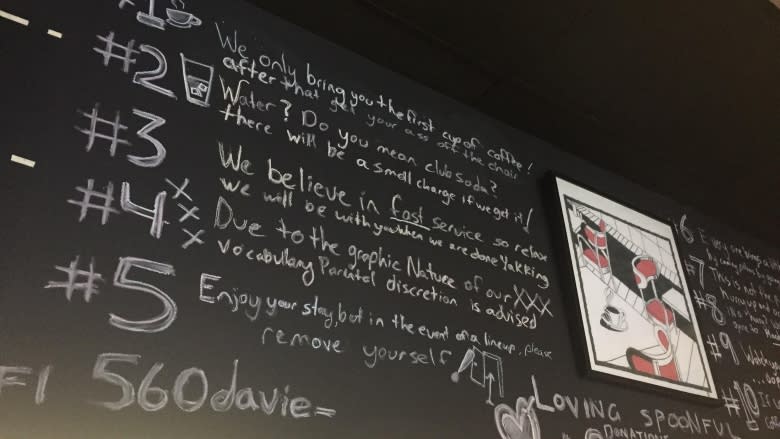 #1
We only bring you the first cup of coffee!
after that get your ass off the chair
#2
Water? Do you mean club soda?
there will be a small charge if we get it!
#3
We believe in fast service so relax
we will be with you when we are done Yakking
#4
XXX
Due to the graphic Nature of our XXX
vocabulary Parental discretion is advised
#5
Enjoy your stay, but in the event of a lineup, please
remove yourself
FI 560davie=
6
#7
This is not
#8
#9
#10
LOVING SPOONFUL
DONATIONS